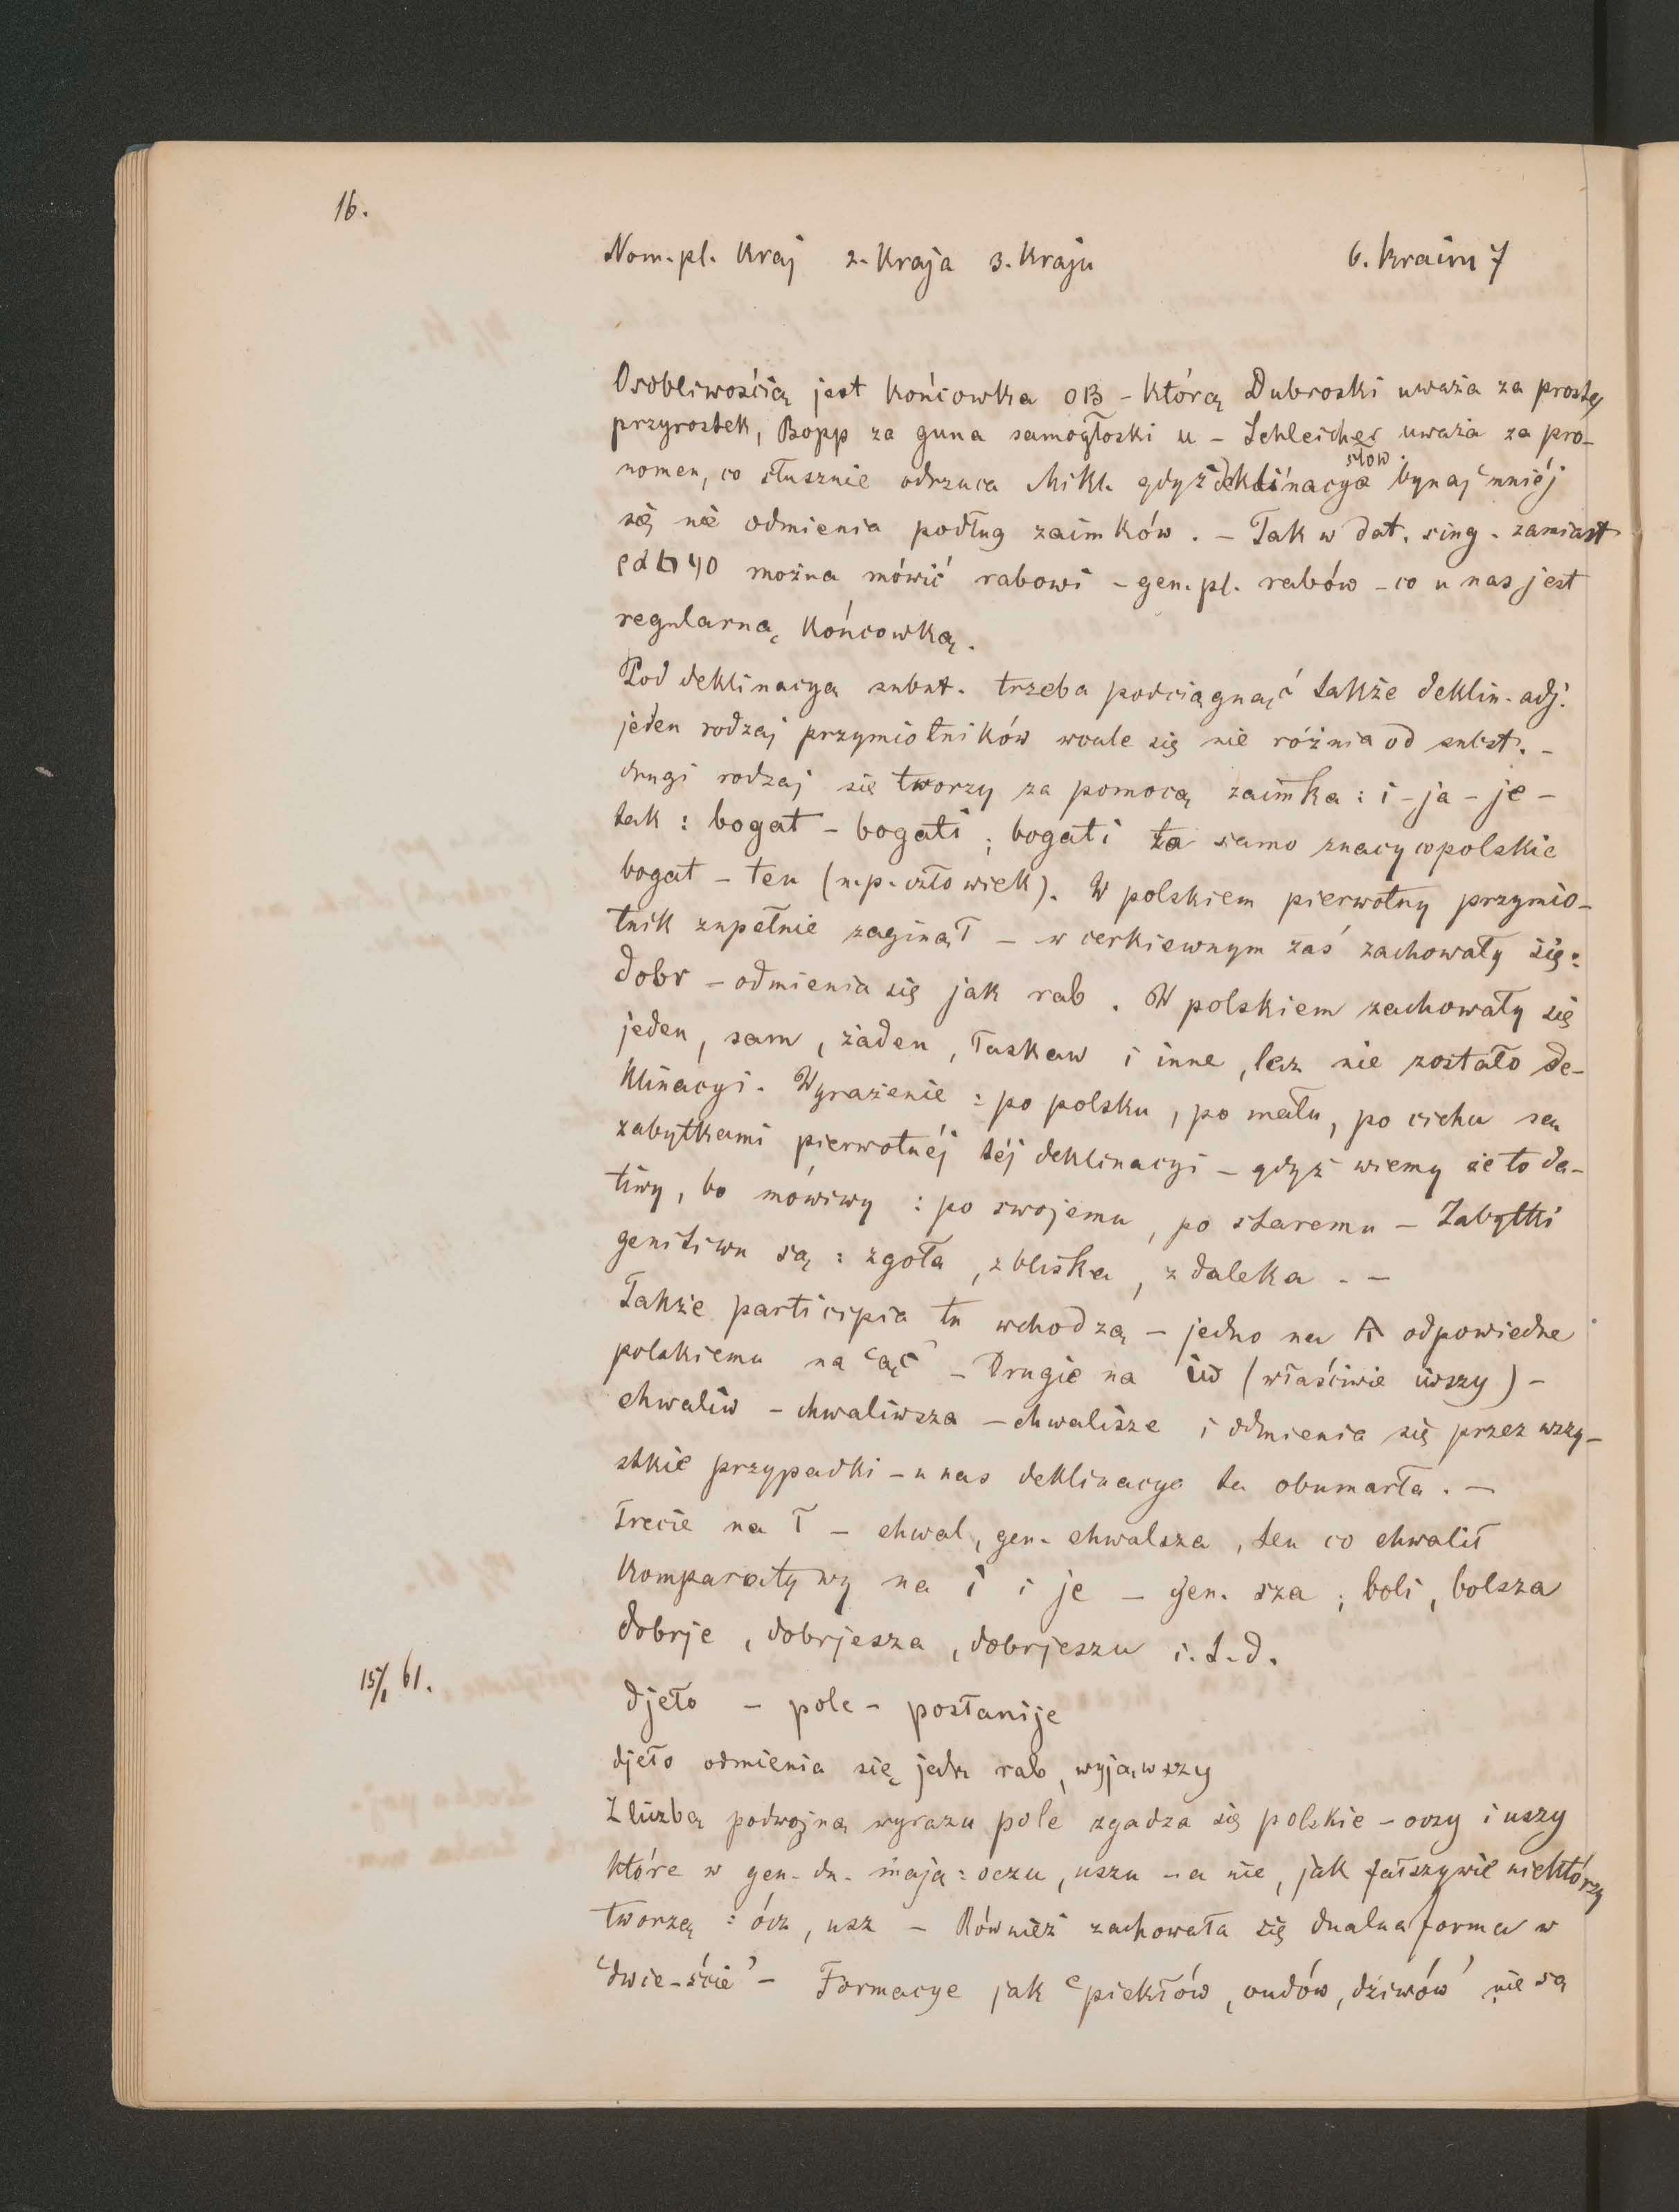 16.
Nom. pl. Kraj 2. Kraja 3. Kraju 6. Kraim 7
Osobliwością jest końcowka OB - którą Dubroski uważa za prosty
przyrostek, Bopp za guna samogłoski u - Schleicher uważa za pro-
nomen, co słusznie odrzuca Mikl. gdyż deklinacya słow. bynajmniéj
się nie odmienia podług zaimków. - Tak w dat. sing. zamiast
można mówić rabowi - gen. pl. rabów - co u nas jest
regularną końcowką.
Pod deklinacya subst. trzeba podciągnąć także deklin. adj.
jeden rodzaj przymiotników wcale się nie różnia od subst. -
drugi rodzaj się tworzy za pomocą zaimka: i - ja - je -
tak: bogat - bogati; bogati to samo znaczy co polskie
bogat - ten (n.p. człowiek). W polskiem pierwotny przymio-
tnik zupełnie zaginął - w cerkiewnym zaś zachowały się:
dobr - odmienia się jak rab. W polskiem zachowały się
jeden, sam, żaden, łaskaw i inne, lecz nie zostało de-
klinacyi. Wyrażenie: po polsku, po mału, po cichu są
zabytkami pierwotnéj téj deklinacyi - gdyż wiemy że to da-
tiwy, bo mówiwy: po swojemu, po staremu - Zabytki
genitiwu są: zgoła, zbliska, z daleka. -
Także participia tu wchodzą - jedno na Ѧ odpowiedne
polskiemu na "ąc" - Drugie na iw (właściwie iwszy) -
chwaliw - chwaliwsza - chwalisze i odmienia się przez wszy-
stkie przypadki - u nas deklinacya ta obumarła. -
Trecie na ł - chwal, gen. chwalsza, ten co chwalił
Komparatywy na i i je - gen. sza; boli, bolsza
dobrje, dobrjesza, dobrjeszu i. t. d.
15/1 61.
djeło - pole - posłanije
djeło odmienia się jak rab, wyjąwszy
Z liczbą podwojną wyrazu pole zgadza się polskie - oczy i uszy
które w gen. du. mają: oczu, uszu - a nie, jak fałszywie niektórzy
tworzą: ócz, usz - Również zachowała się dualna forma w
'dwie-ście' - Formacye jak 'piekłów, cudów, dziwów' nie są